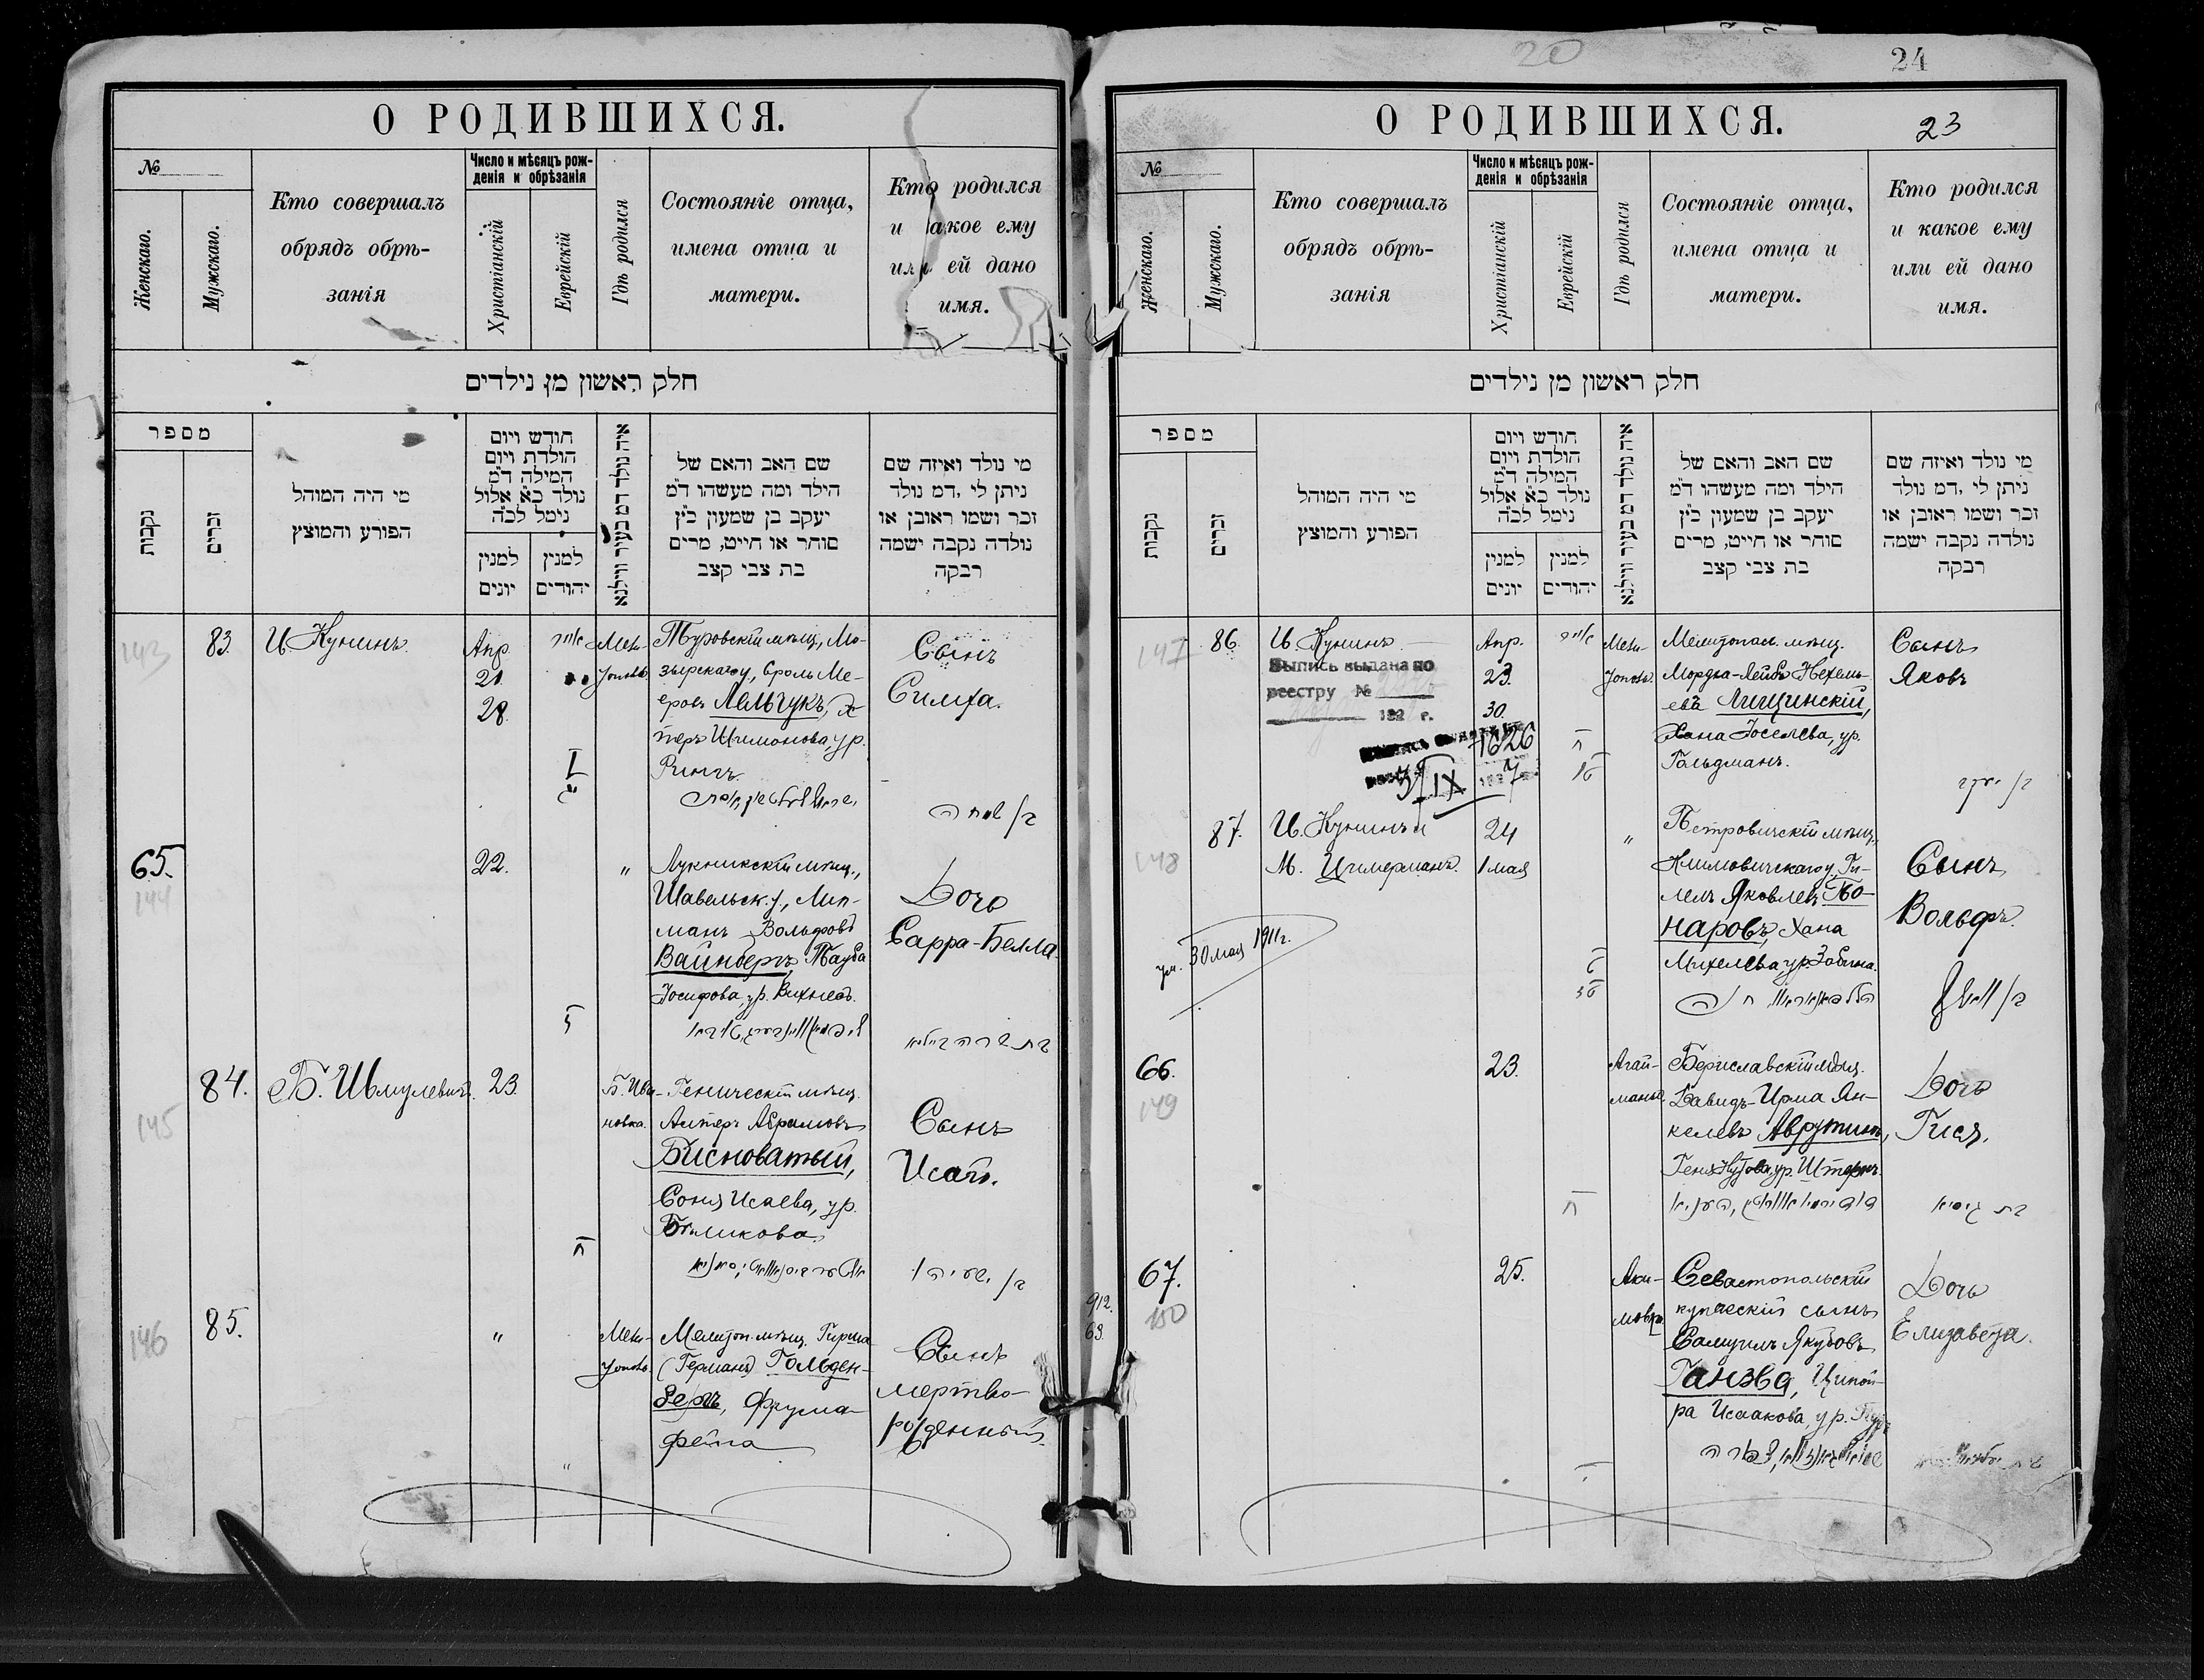 О РОДИВШИХСЯ.
№
Женскаго.
Мужскаго.
Кто совершалъ
обрядъ обрѣ-
занія
Число и мѣсяцъ рож-
денія и обрѣзанія
Христіанскій
Еврейскій
Гдѣ родился
Состояніе отца,
имена отца и
матери.
Кто родился
и акое ему
или ей дано
имя.
חלק ראשון מן נילדים
מספר
נקבות
זכרים
מי היה המוהל
הפורע והמוצץ
חודש ויום
הולדת ויום
המילה ד״מ
נולד כ״א אלול
נימל לכ״ה
למנין
יונים
למנין
יהודים
איה נולד דמ בעיר ווילנא
שם האב והאם של
הילד ומה מעשהו ד״מ
יעקב בן שמעון כ״ץ
סוחר או חייט, מרים
בת צבי קצב
מי נולד ואיזה שם
ניתן לי ,דמ נולד
זכר ושמו ראובן או
נולדה נקבה ישמה
רבקה
143
83.
И Кунинъ.
Апр.
21.
28.
אייר
Мели-
тополь
Туровскій мѣщ., Мо-
зырскаго у., Сроль Ме-
еровъ Лельчукъ,
Шимонова, ур.
Рингъ.
Сынъ
Симха.
בן שמחה
65.
144
22.
"
Лукникскій мѣщ.,
Шавельск. у., Лип-
манъ Вольфовъ
Вайнбергъ, Тауба
Іосифова, ур.
Дочь
Сарра-Белла.
בת שרה ביילא
145
84.
Б. Шмулевичъ.
23.
Б. Ива-
новка.
Геническій мѣщ.
Алтеръ Абрамовъ
Бисноватый,
Соня Исаева, ур.
Биликова.
ח
Сынъ
Исай.
בן ישעיהו
146
85.
"
Мели-
тополь.
Мелитоп. мѣщ. Гирша
(Германъ) Гольден-
бергъ, Фрума-
Фейга
Сынъ
мертво-
рожденный.
912.
63.
20
24
О РОДИВШИХСЯ.
23
№
Женскаго.
Мужскаго.
Кто совершалъ
обрядъ обрѣ-
занія
Число и мѣсяцъ рож-
денія и обрѣзанія
Христіанскій
Еврейскій
Гдѣ родился
Состояніе отца,
имена отца и
матери.
Кто родился
и какое ему
или ей дано
имя.
חלק ראשון מן נילדים
מספר
נקבות
זכרים
מי היה המוהל
הפורע והמוצץ
חודש ויום
הולדת ויום
המילה ד״מ
נולד כ״א אלול
נימל לכ״ה
למנין
יונים
למנין
יהודים
איה נולד דמ בעיר ווילנא
שם האב והאם של
הילד ומה מעשהו ד״מ
יעקב בן שמעון כ״ץ
סוחר או חייט, מרים
בת צבי קצב
מי נולד ואיזה שם
ניתן לי ,דמ נולד
זכר ושמו ראובן או
נולדה נקבה ישמה
רבקה
147
86.
И. Кунинъ.
Выпись выдана по
реестру №
192 г.
1626
5/IX 1927
Апр.
23.
30.
אייר
Мели-
тополь.
Мелитопол. мѣщ.
Мордка-Лейбъ Нехемь-
евъ Лищинскій,
Хана Іоселева, ур.
Гольдманъ.
Сынъ
Яковъ
בן יעקב
148
87.
И. Кунинъ и
М. Цимерманъ.
24
1 мая
"
Петровичскій мѣщ.,
Климовичскаго у., Ги-
лель Яковлевъ Бо-
наровъ, Хана
Михелева, ур. Забина.
Сынъ
Вольфъ.
בן וואלף
ум. 30 мая 1911 г.
66.
149
23.
Агай-
маны.
Бериславскій мѣщ.
Давидъ-Ирма Ян-
келевъ Аврутинъ,
Геня ур. Штернъ.
ח
Дочь
Гися.
בת גיסיא
67.
150
25.
Аки-
мовка
Севастопольскій
купеческій сынъ
Самуилъ Якубовъ
Ганзва, Ципой-
ра Исаакова, ур.
Дочь
Елизавета.